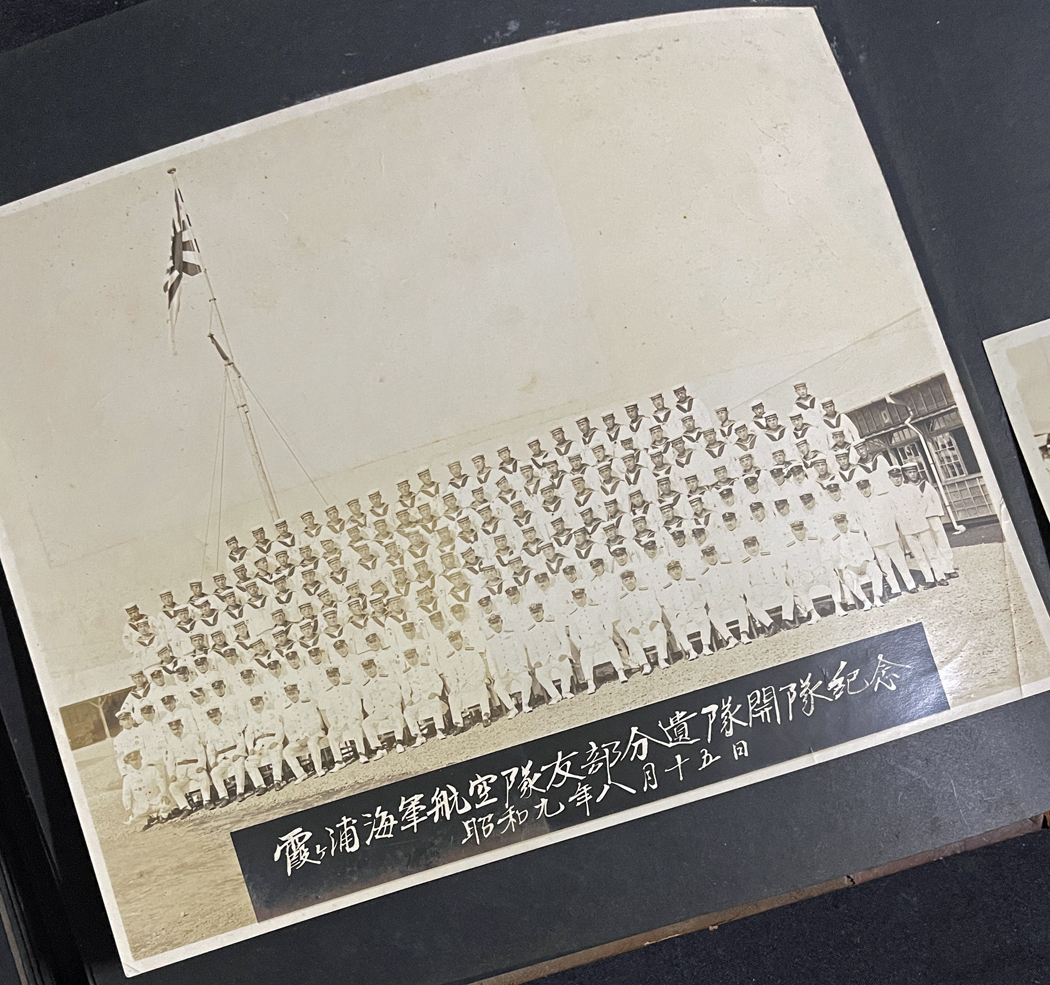 霞ヶ浦海軍航空隊友部分遺隊開隊紀念
昭和九年八月十五日